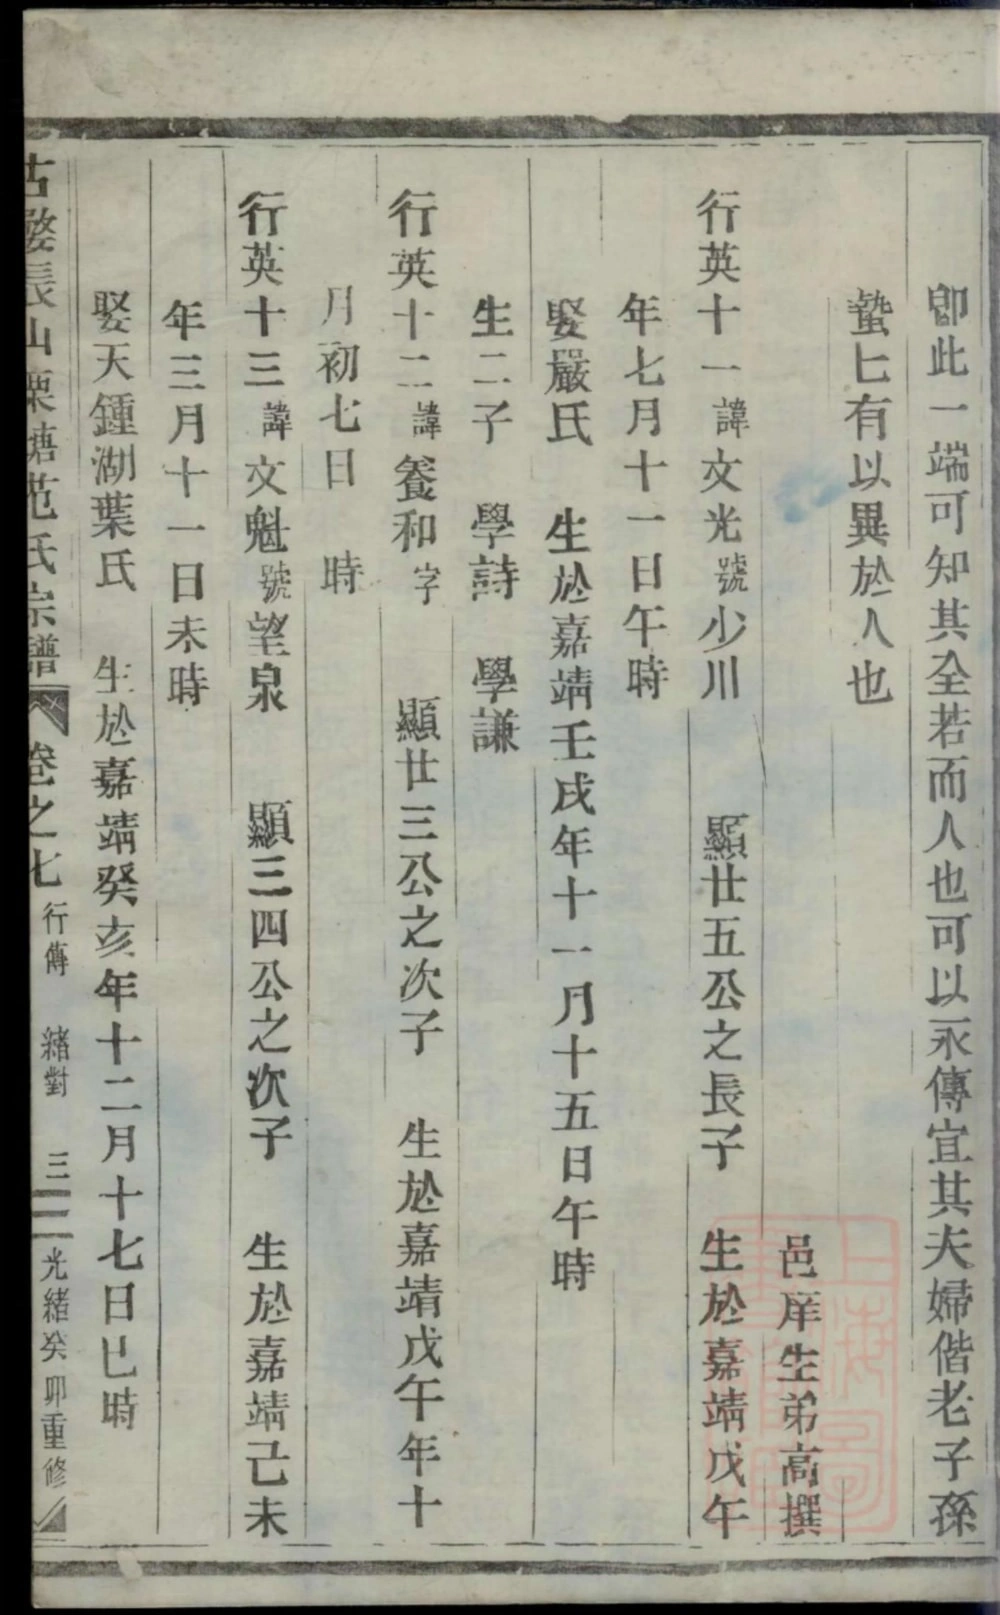 卽此一端可知其全若而人也可以永傳宜其夫婦偕老子孫
蟄匕有以異於人也
邑庠生弟高撰
行英十一諱文光號少川 顯廿五公之長子 生於嘉靖戊午
年七月十一日午時
娶嚴氏 生於嘉靖壬戌年十一月十五日午時
生二子 學詩 學謙
行英十二諱養和字 顯廿三公之次子 生於嘉靖戊午年十
月初七日 時
行英十三諱文魁號望泉 顯三四公之次子 生於嘉靖己未
年三月十一日未時
娶天鍾湖葉氏 生於嘉靖癸亥年十二月十七日巳時
古婺長山栗塘范氏宗譜 卷之七 行傳 緒對 三 光緒癸卯重修
上海圖書館藏